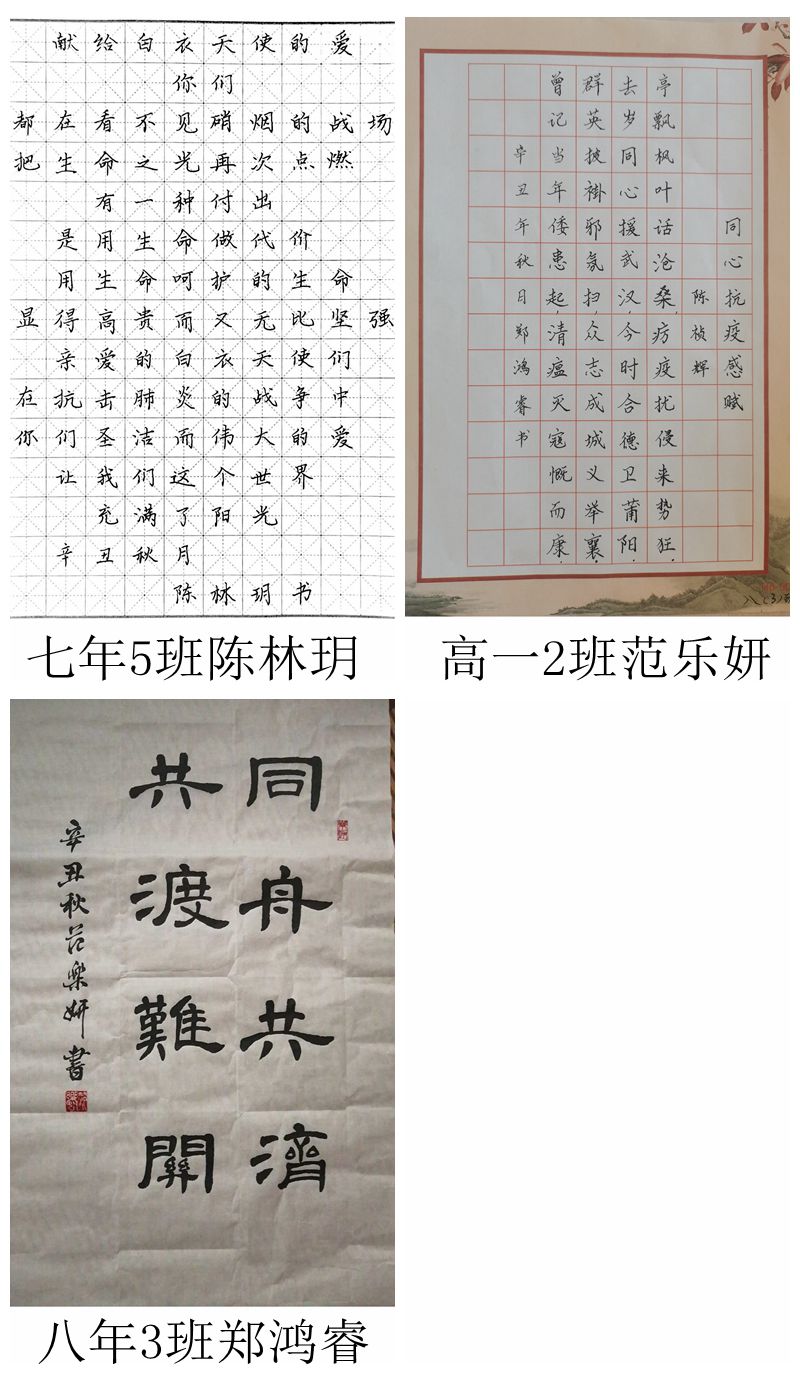 献给白衣天使的爱
你们
都在看不见硝烟的战场
把生命之光再次点燃
有一种付出
是用生命做代价
用生命呵护的生命
显得高贵而又无比坚强
亲爱的白衣天使们
在抗击肺炎的战争中
你们圣洁而伟大的爱
让我们这个世界
充满了阳光
辛丑秋月
陈林玥书
七年5班陈林玥
同心抗疫感赋
陈桢辉
亭飘枫叶话沧桑疠疫扰侵来势狂
去岁同心援武汉今时合德卫莆阳
群英披褂邪氛扫众志成城义举襄
曾记当年倭患起清瘟灭寇慨而康
辛丑年秋日郑鸿睿书
八(3)
高一2班范乐妍
同舟共济
共渡難關
辛丑秋范樂妍書
八年3班郑鸿睿